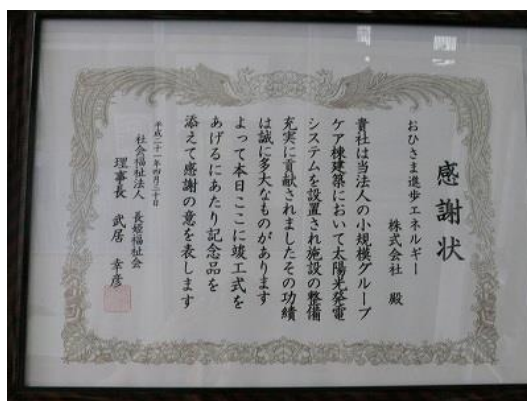 感謝状
おひさま進歩エネルギー
株式会社 殿
貴社は当法人の小規模グループ
ケア棟建築において太陽光発電
システムを設置され施設の整備
充実に貢献されましたその功績
は誠に多大なものがあります
よって本日ここに竣工式を
あげるにあたり記念品を
添えて感謝の意を表します
平成二十一年四月三十日
社会福祉法人 長姫福祉会
理事長 武居 幸彦